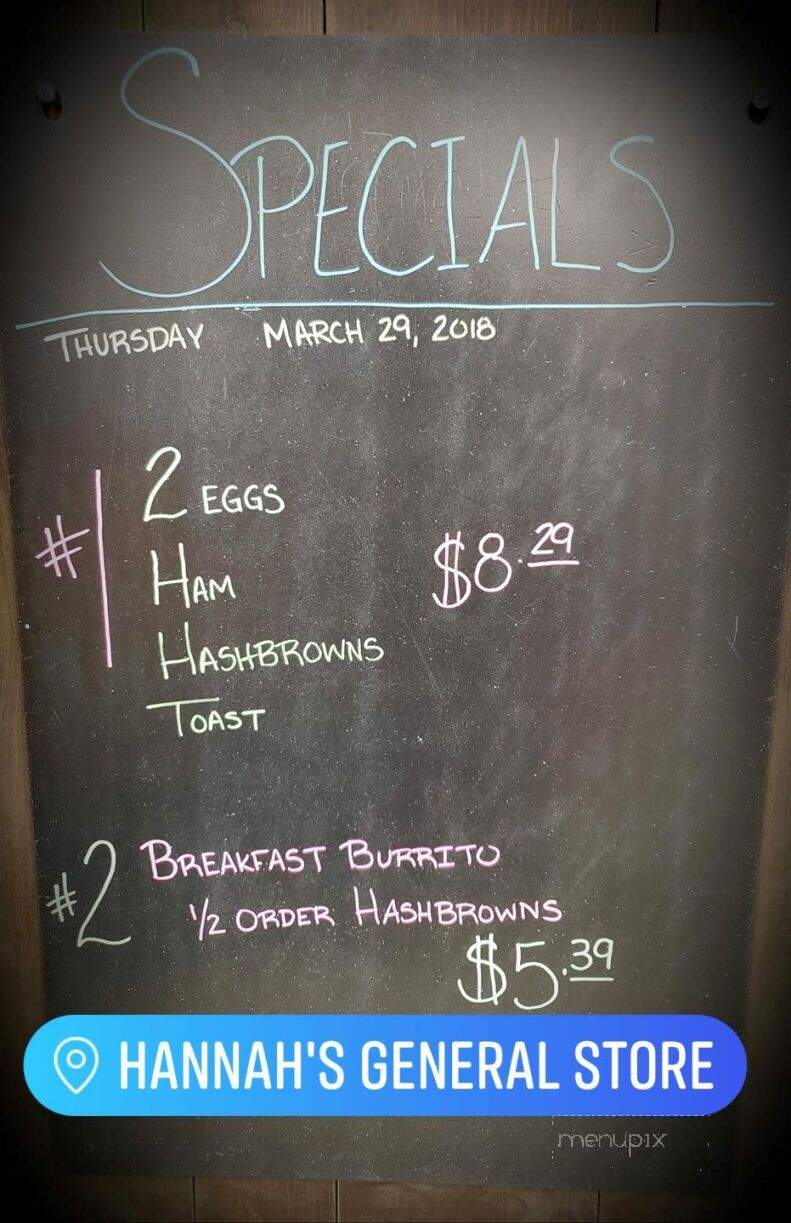 SPECIALS
THURSDAY MARCH 29, 2018
#1
2 EGGS
HAM
HASHBROWNS
TOAST
$8.29
#2 BREAKFAST BURRITO
1/2 ORDER HASHBROWNS
$5.39
HANNAH'S GENERAL STORE
menupix